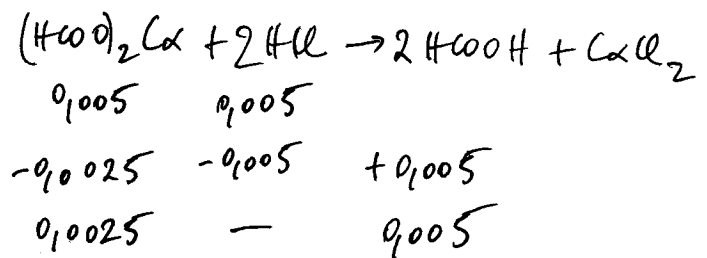 (HCOO)₂Ca + 2HCl → 2HCOOH + CaCl₂
0,005 0,005
-0,0025 -0,005 +0,005
0,0025 — 0,005